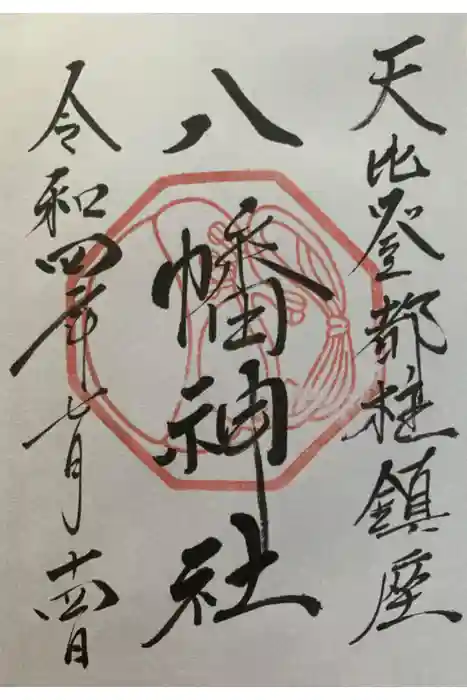 天比登都柱鎮座
八幡神社
令和四年七月十四日